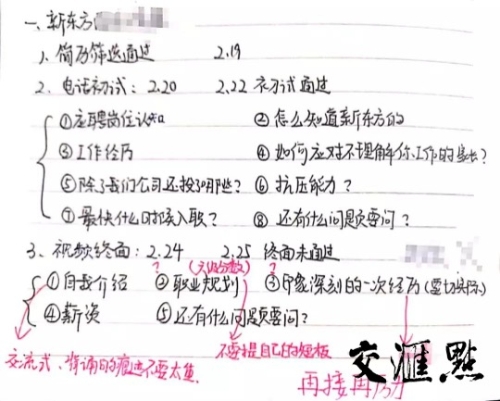 一、新东方
1、简历筛选通过 2.19
2、电话初试：2.20 2.22 初试通过
①应聘岗位认知 ②怎么知道新东方的
③工作经历 ④如何应对不理解你工作的家长？
⑤除了我们公司还投了哪些？ ⑥抗压能力？
⑦最快什么时候入职？ ⑧还有什么问题要问？
3、视频终面：2.24 2.25 终面未通过
①自我介绍 ?②职业规划 ?③印象深刻的一次经历
④薪资 ⑤还有什么问题要问？
交流式，背诵的痕迹不要太重 不要提自己的短板
再接再厉
交汇點